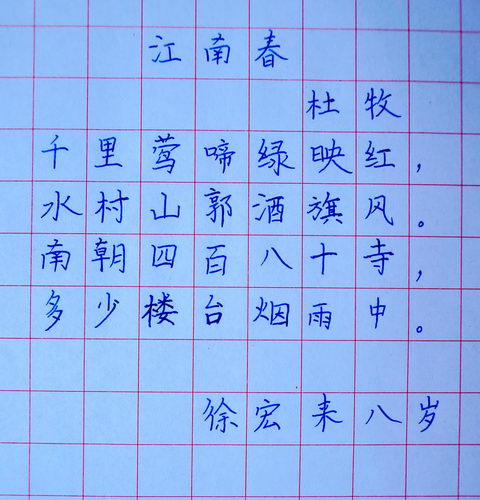 江南春
杜牧
千里莺啼绿映红，
水村山郭酒旗风。
南朝四百八十寺，
多少楼台烟雨中。
徐宏来八岁